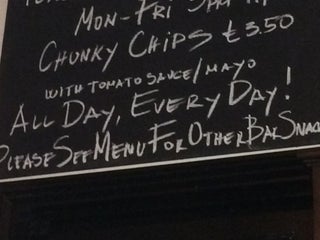 MON-FRI
CHUNKY CHIPS £3.50
WITH TOMATO SAUCE/MAYO
ALL DAY, EVERY DAY!
PLEASE SEE MENU FOR OTHER BAR SNACK